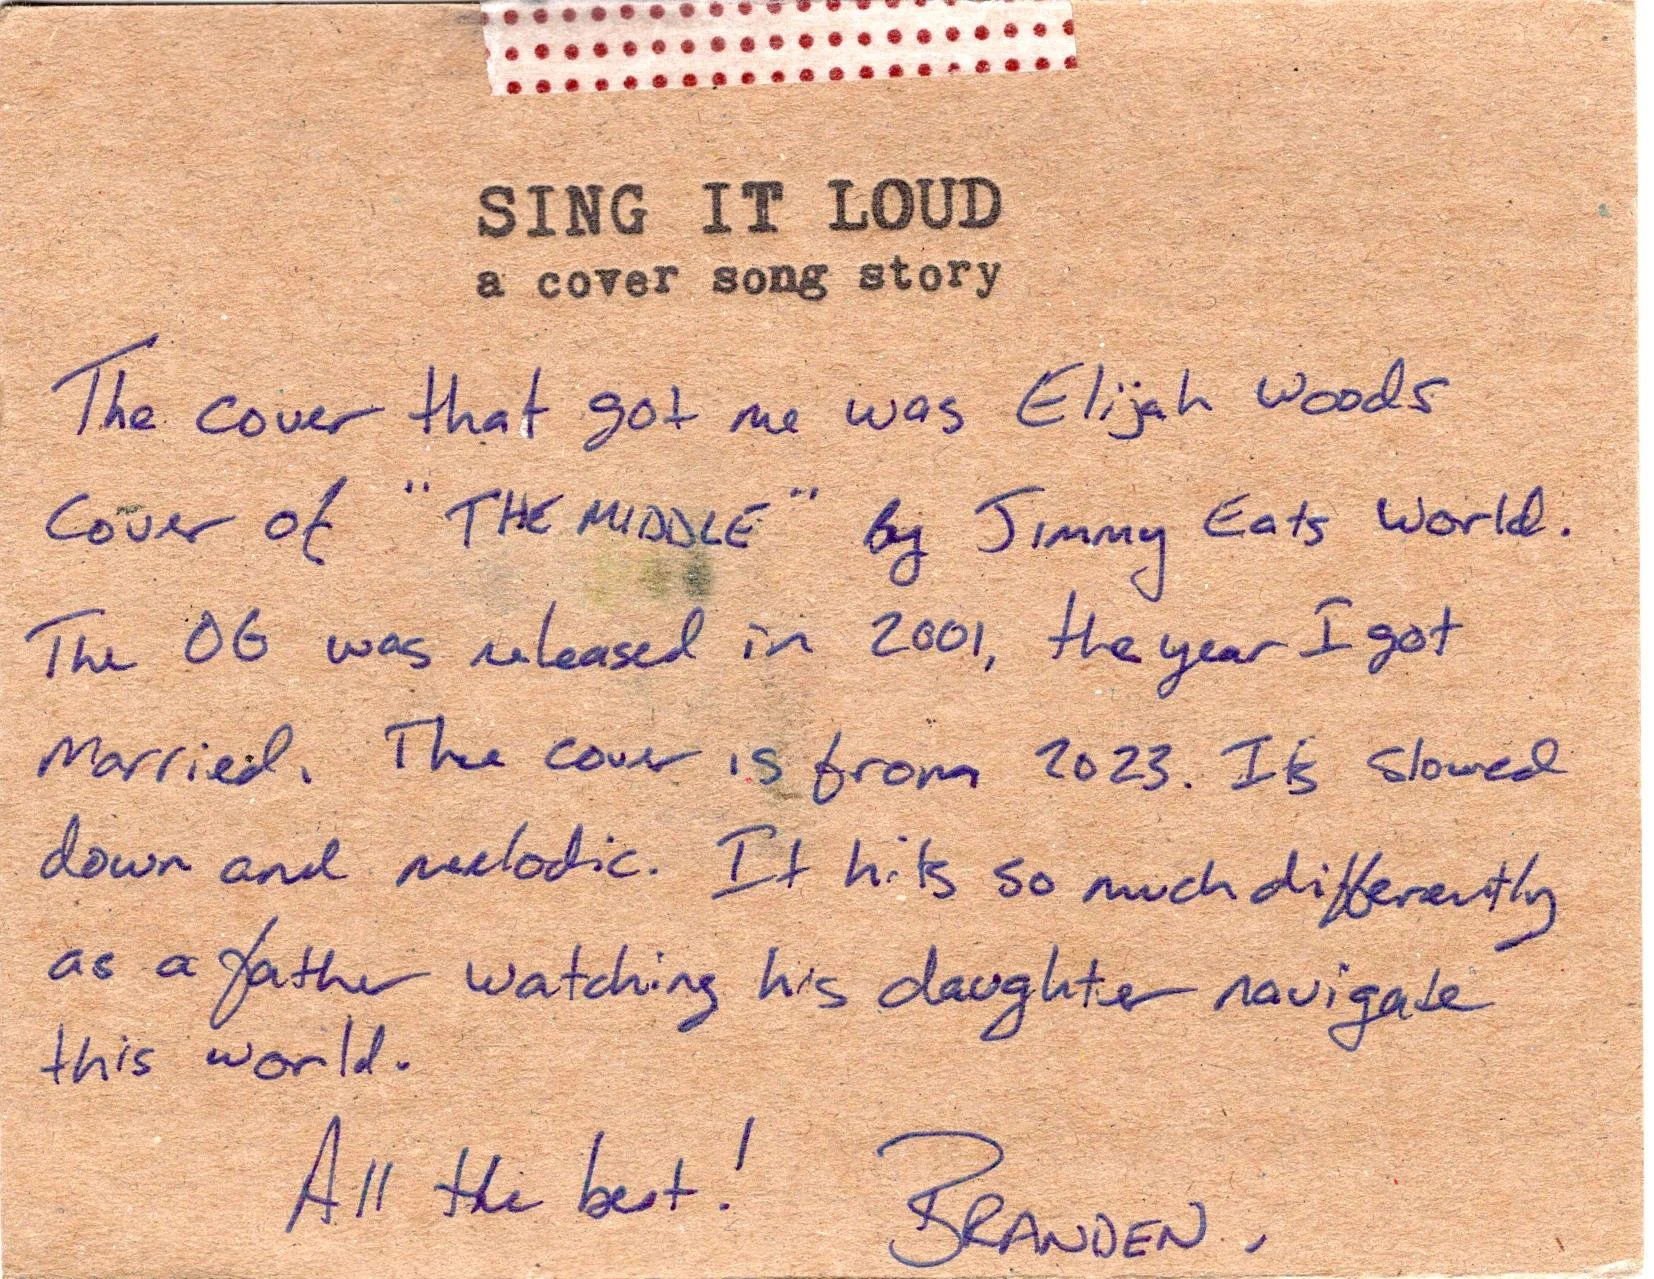 SING IT LOUD
a cover song story
The cover that got me was Elijah Woods
cover of "THE MIDDLE" by Jimmy Eats World.
The OG was released in 2001, the year I got
Married. The cover is from 2023. Its slowed
down and melodic. It hits so much differently
as a father watching his daughter navigate
this world.
All the best! BRANDEN.